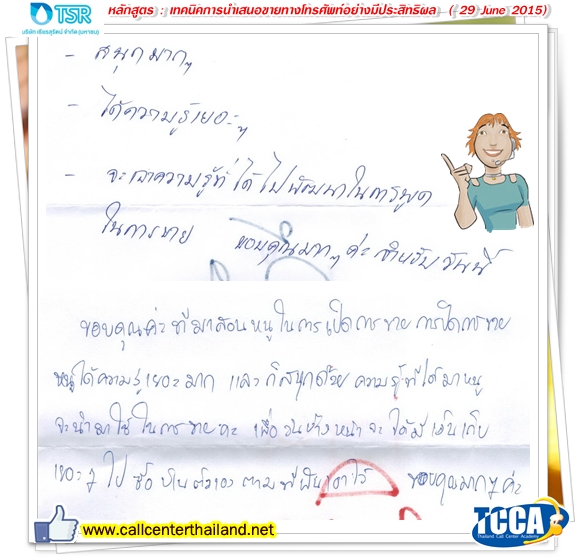 TSR
บริษัท เธียรสุรัตน์ จำกัด (มหาชน)
หลักสูตร : เทคนิคการนำเสนอขายทางโทรศัพท์อย่างมีประสิทธิผล ( 29 June 2015)
- สนุกมากๆ
- ได้ความรู้เยอะๆ
- จะเอาความรู้ที่ได้ไปพัฒนาในการพูด
ในการขาย ขอบคุณมากๆ ค่ะ สำหรับวันนี้
ขอบคุณค่ะที่มาสอนหนูในการเปิดการขาย การปิดการขาย
หนูได้ความรู้เยอะมาก และก็สนุกด้วย ความรู้ที่ได้มาหนู
จะนำมาใช้ในการขายคะ เพื่อวันข้างหน้าจะได้มีเงินเก็บ
เยอะๆ ไปซื้อ ตัวเองตามที่ฝันเอาไว้ ขอบคุณมากๆ ค่ะ
www.callcenterthailand.net
TCCA
Thailand Call Center Academy